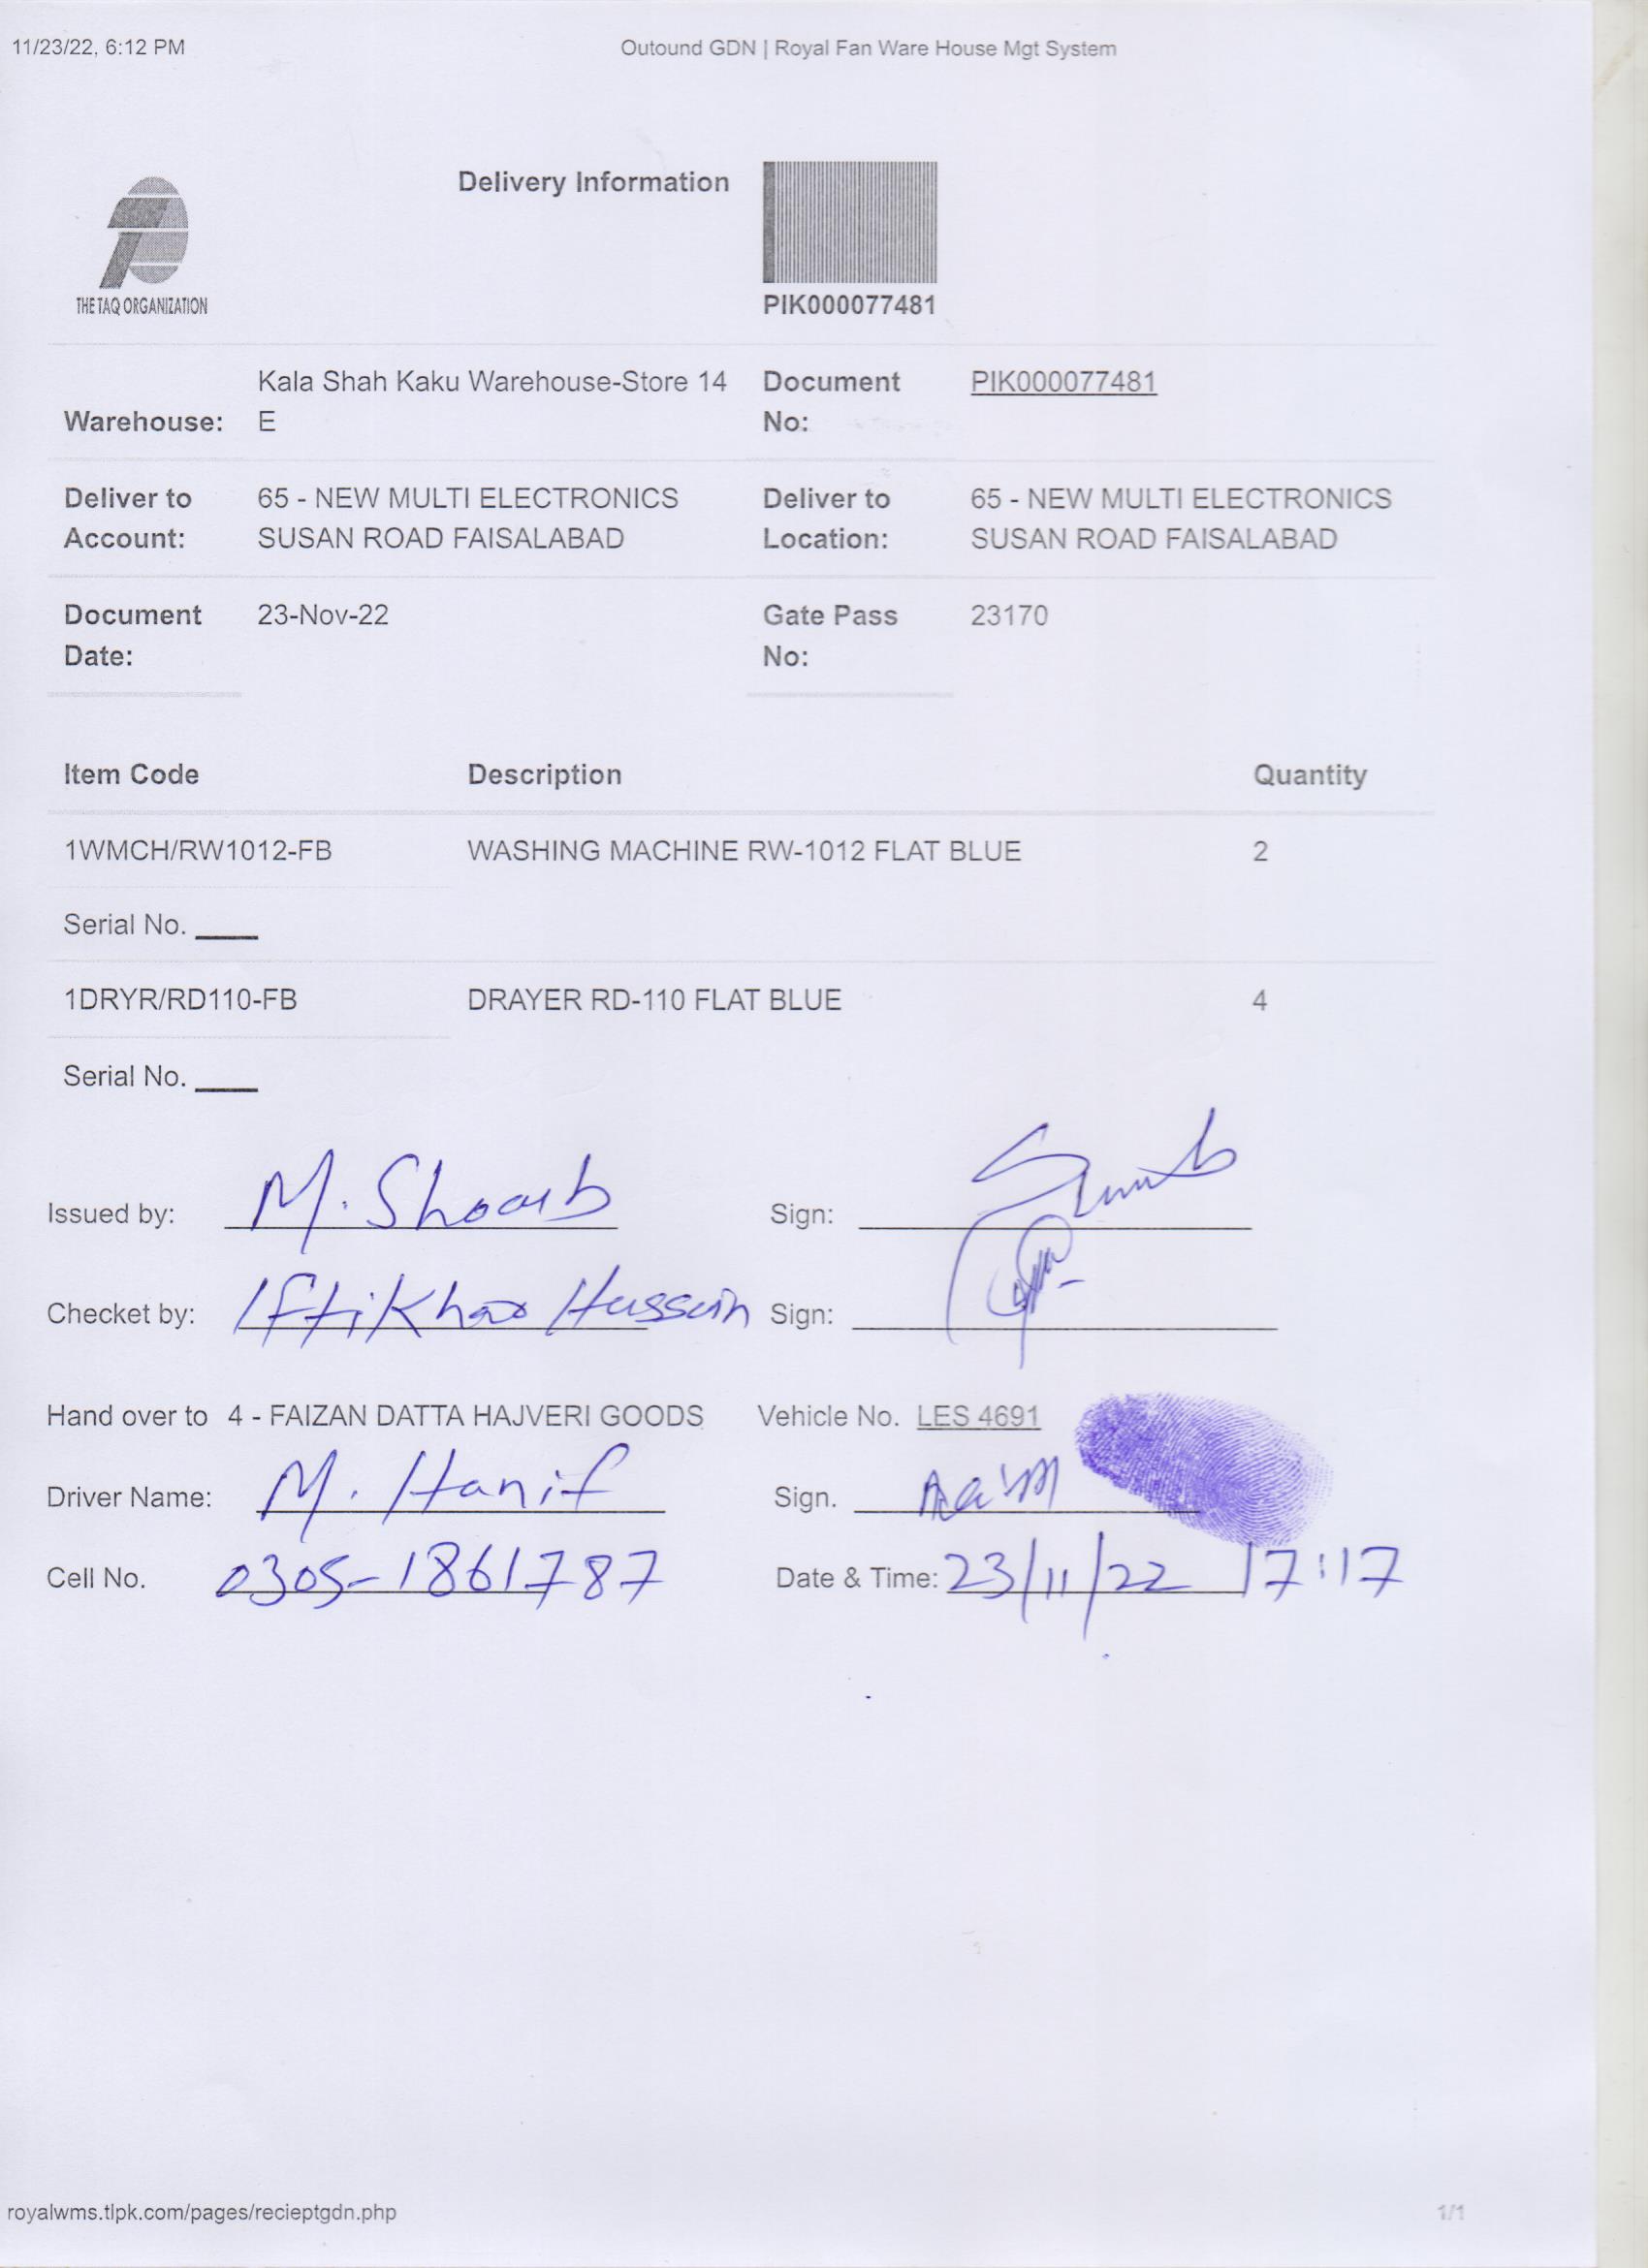 11/23/22, 6:12 PM Outound GDN | Royal Fan Ware House Mgt System
Delivery Information
THE TAQ ORGANIZATION
PIK000077481
Warehouse: Kala Shah Kaku Warehouse-Store 14 E Document No: PIK000077481
Deliver to Account: 65 - NEW MULTI ELECTRONICS SUSAN ROAD FAISALABAD Deliver to Location: 65 - NEW MULTI ELECTRONICS SUSAN ROAD FAISALABAD
Document Date: 23-Nov-22 Gate Pass No: 23170
Item Code Description Quantity
1WMCH/RW1012-FB WASHING MACHINE RW-1012 FLAT BLUE 2
Serial No.
1DRYR/RD110-FB DRAYER RD-110 FLAT BLUE 4
Serial No.
Issued by: M. Shoaib Sign:
Checket by: Iftikhar Hussain Sign:
Hand over to 4 - FAIZAN DATTA HAJVERI GOODS Vehicle No. LES 4691
Driver Name: M. Hanif Sign.
Cell No. 0305-1861787 Date & Time: 23/11/22 17:17
royalwms.tlpk.com/pages/recieptgdn.php 1/1